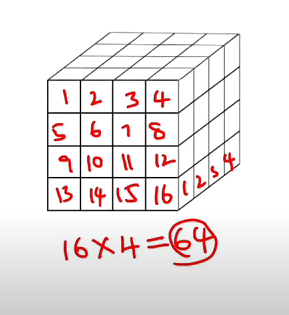 1 2 3 4
5 6 7 8
9 10 11 12
13 14 15 16 1 2 3 4
16×4=64